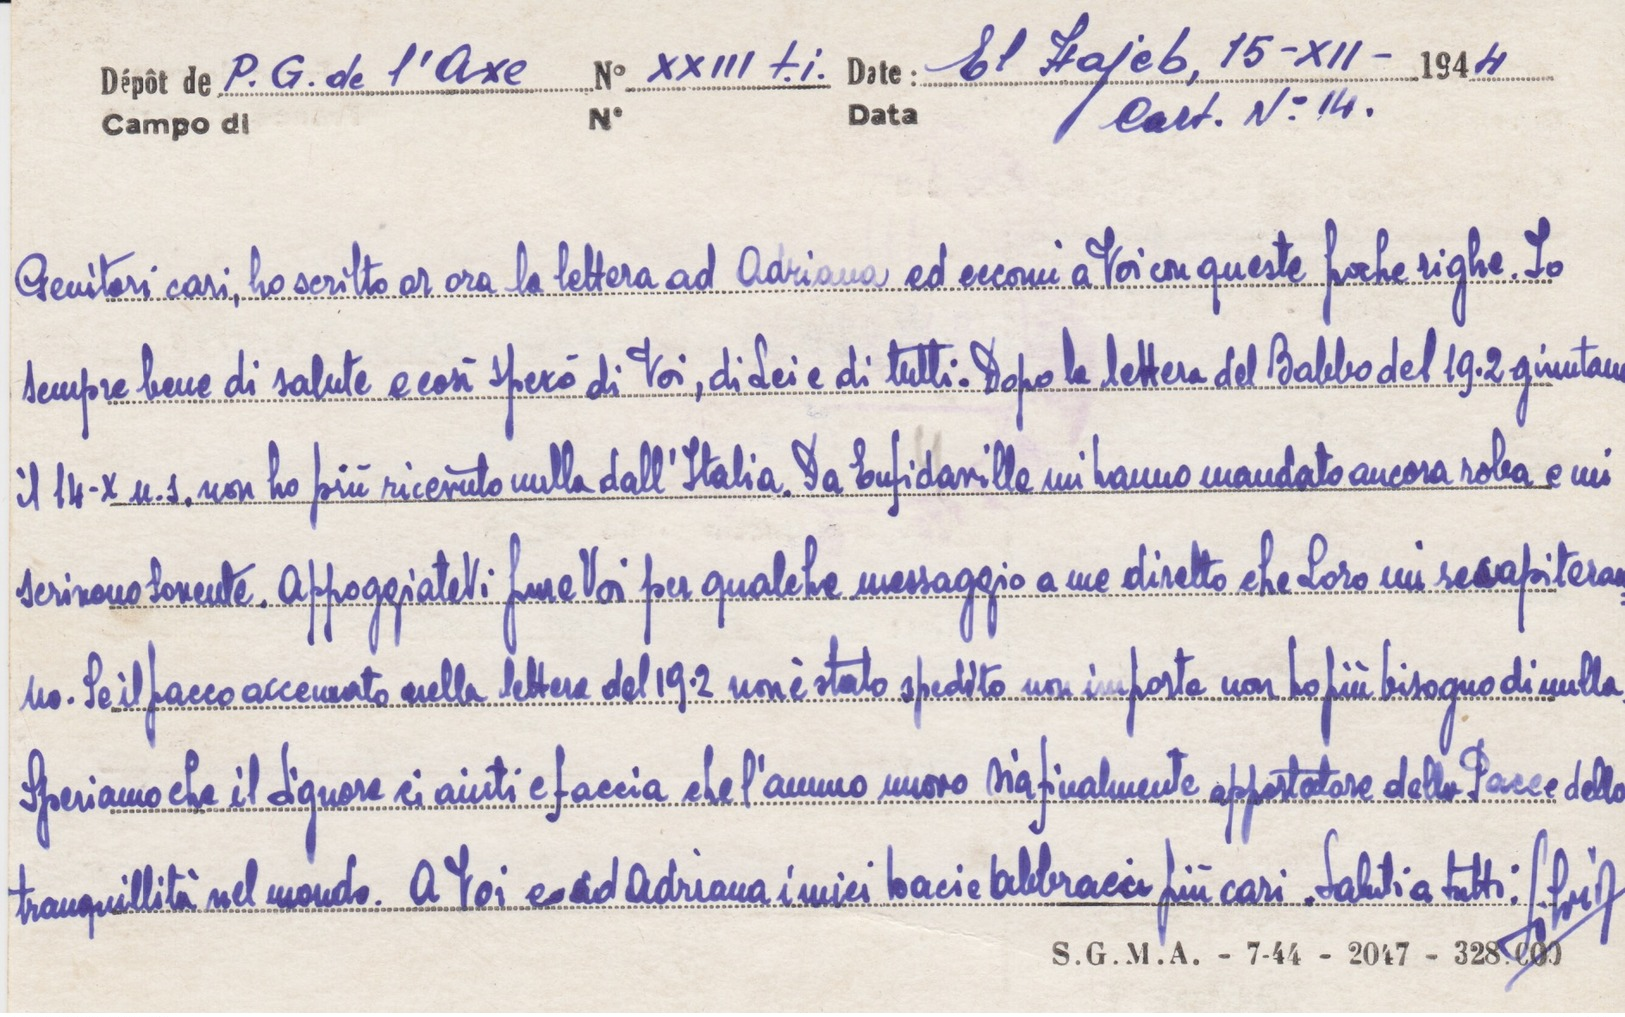 Dépôt de P. G. de l'Axe N° XXIII t.i. Date : El Hajeb, 15-XII- 1944
Campo di N° Data Cart. N° 14.
Genitori cari, ho scritto or ora la lettera ad Adriana ed eccomi a Voi con queste poche righe. Io
sempre bene di salute e così spero di Voi, di Lei e di tutti. Dopo la lettera del Babbo del 19.2 giuntami
il 14-X u.s. non ho più ricevuto nulla dall'Italia. Da Enfidaville mi hanno mandato ancora roba e mi
scrivono sovente. AppoggiateVi pure Voi per qualche messaggio a me diretto che Loro mi recapiteran=
no. Se il pacco accennato nella lettera del 19.2 non è stato spedito non importa non ho più bisogno di nulla.
Speriamo che il Signore ci aiuti e faccia che l'anno nuovo sia finalmente apportatore della Pace e della
tranquillità nel mondo. A Voi ed ad Adriana i miei baci e abbracci più cari. Saluti a tutti: Silvio
S.G.M.A. - 7-44 - 2047 - 328.000